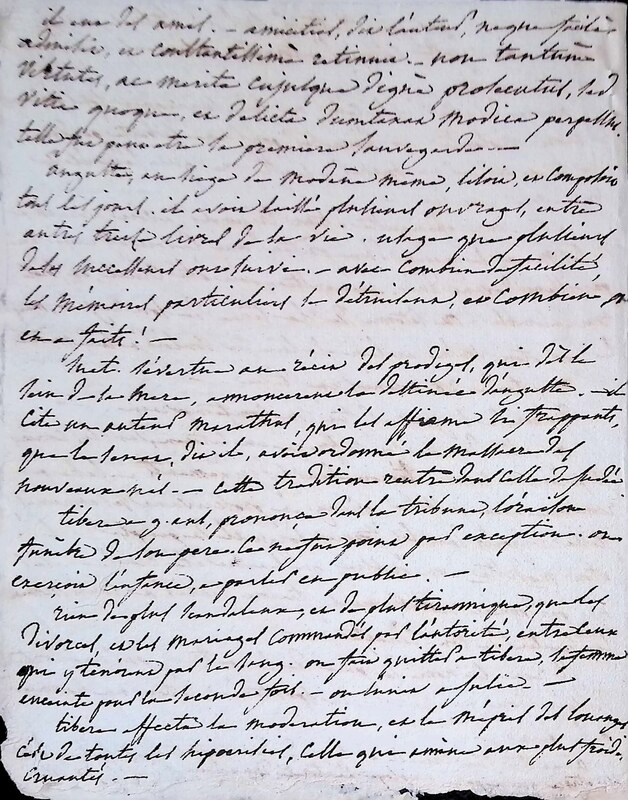 il eut des amis. — amicitias, dit l'auteur, neque facile
admisit, et constantissime retinuit. — non tantum
virtutes, ac merita cujusque digne prosecutus, sed
vitia quoque, et delicta dumtaxat modica perpessus.
telle fut peut etre la premiere sauvegarde. —
auguste, au siege de modène même, lisoit, et composoit
tous les jours. il avoit laissé plusieurs ouvrages, entre
autres treize livres de la vie. usage que plusieurs
de ses successeurs ont suivi. — avec combien de facilité,
les mémoires particuliers se détruisent, et combien on
en a faits! —
Suet. s'évertue au récit des prodiges, qui dès le
sein de la mere, annoncerent la destinée d'auguste. — il
cite un auteur marathus, qui les affirme si frappants,
que le senat, dit il, avoit ordonné le massacre des
nouveaux nés. — Cette tradition rentre dans celle de judée
tibere a 9. ans, prononce dans la tribune, l'oraison
funèbre de son pere. Ce ne fut point par exception. on
exerçoit l'enfance, a parler en public. —
rien de plus scandaleux, et de plus tirannique, que les
divorces, et les mariages commandés par l'autorité, entre ceux
qui y tenoient par le sang. on fait quitter a tibere, sa femme
enceinte pour la seconde fois. — on l'unit a julie. —
tibere affecta la modération, et le mépris des louanges
c'est de toutes les hipocrisies, celle qui amène aux plus froides
cruautés. —